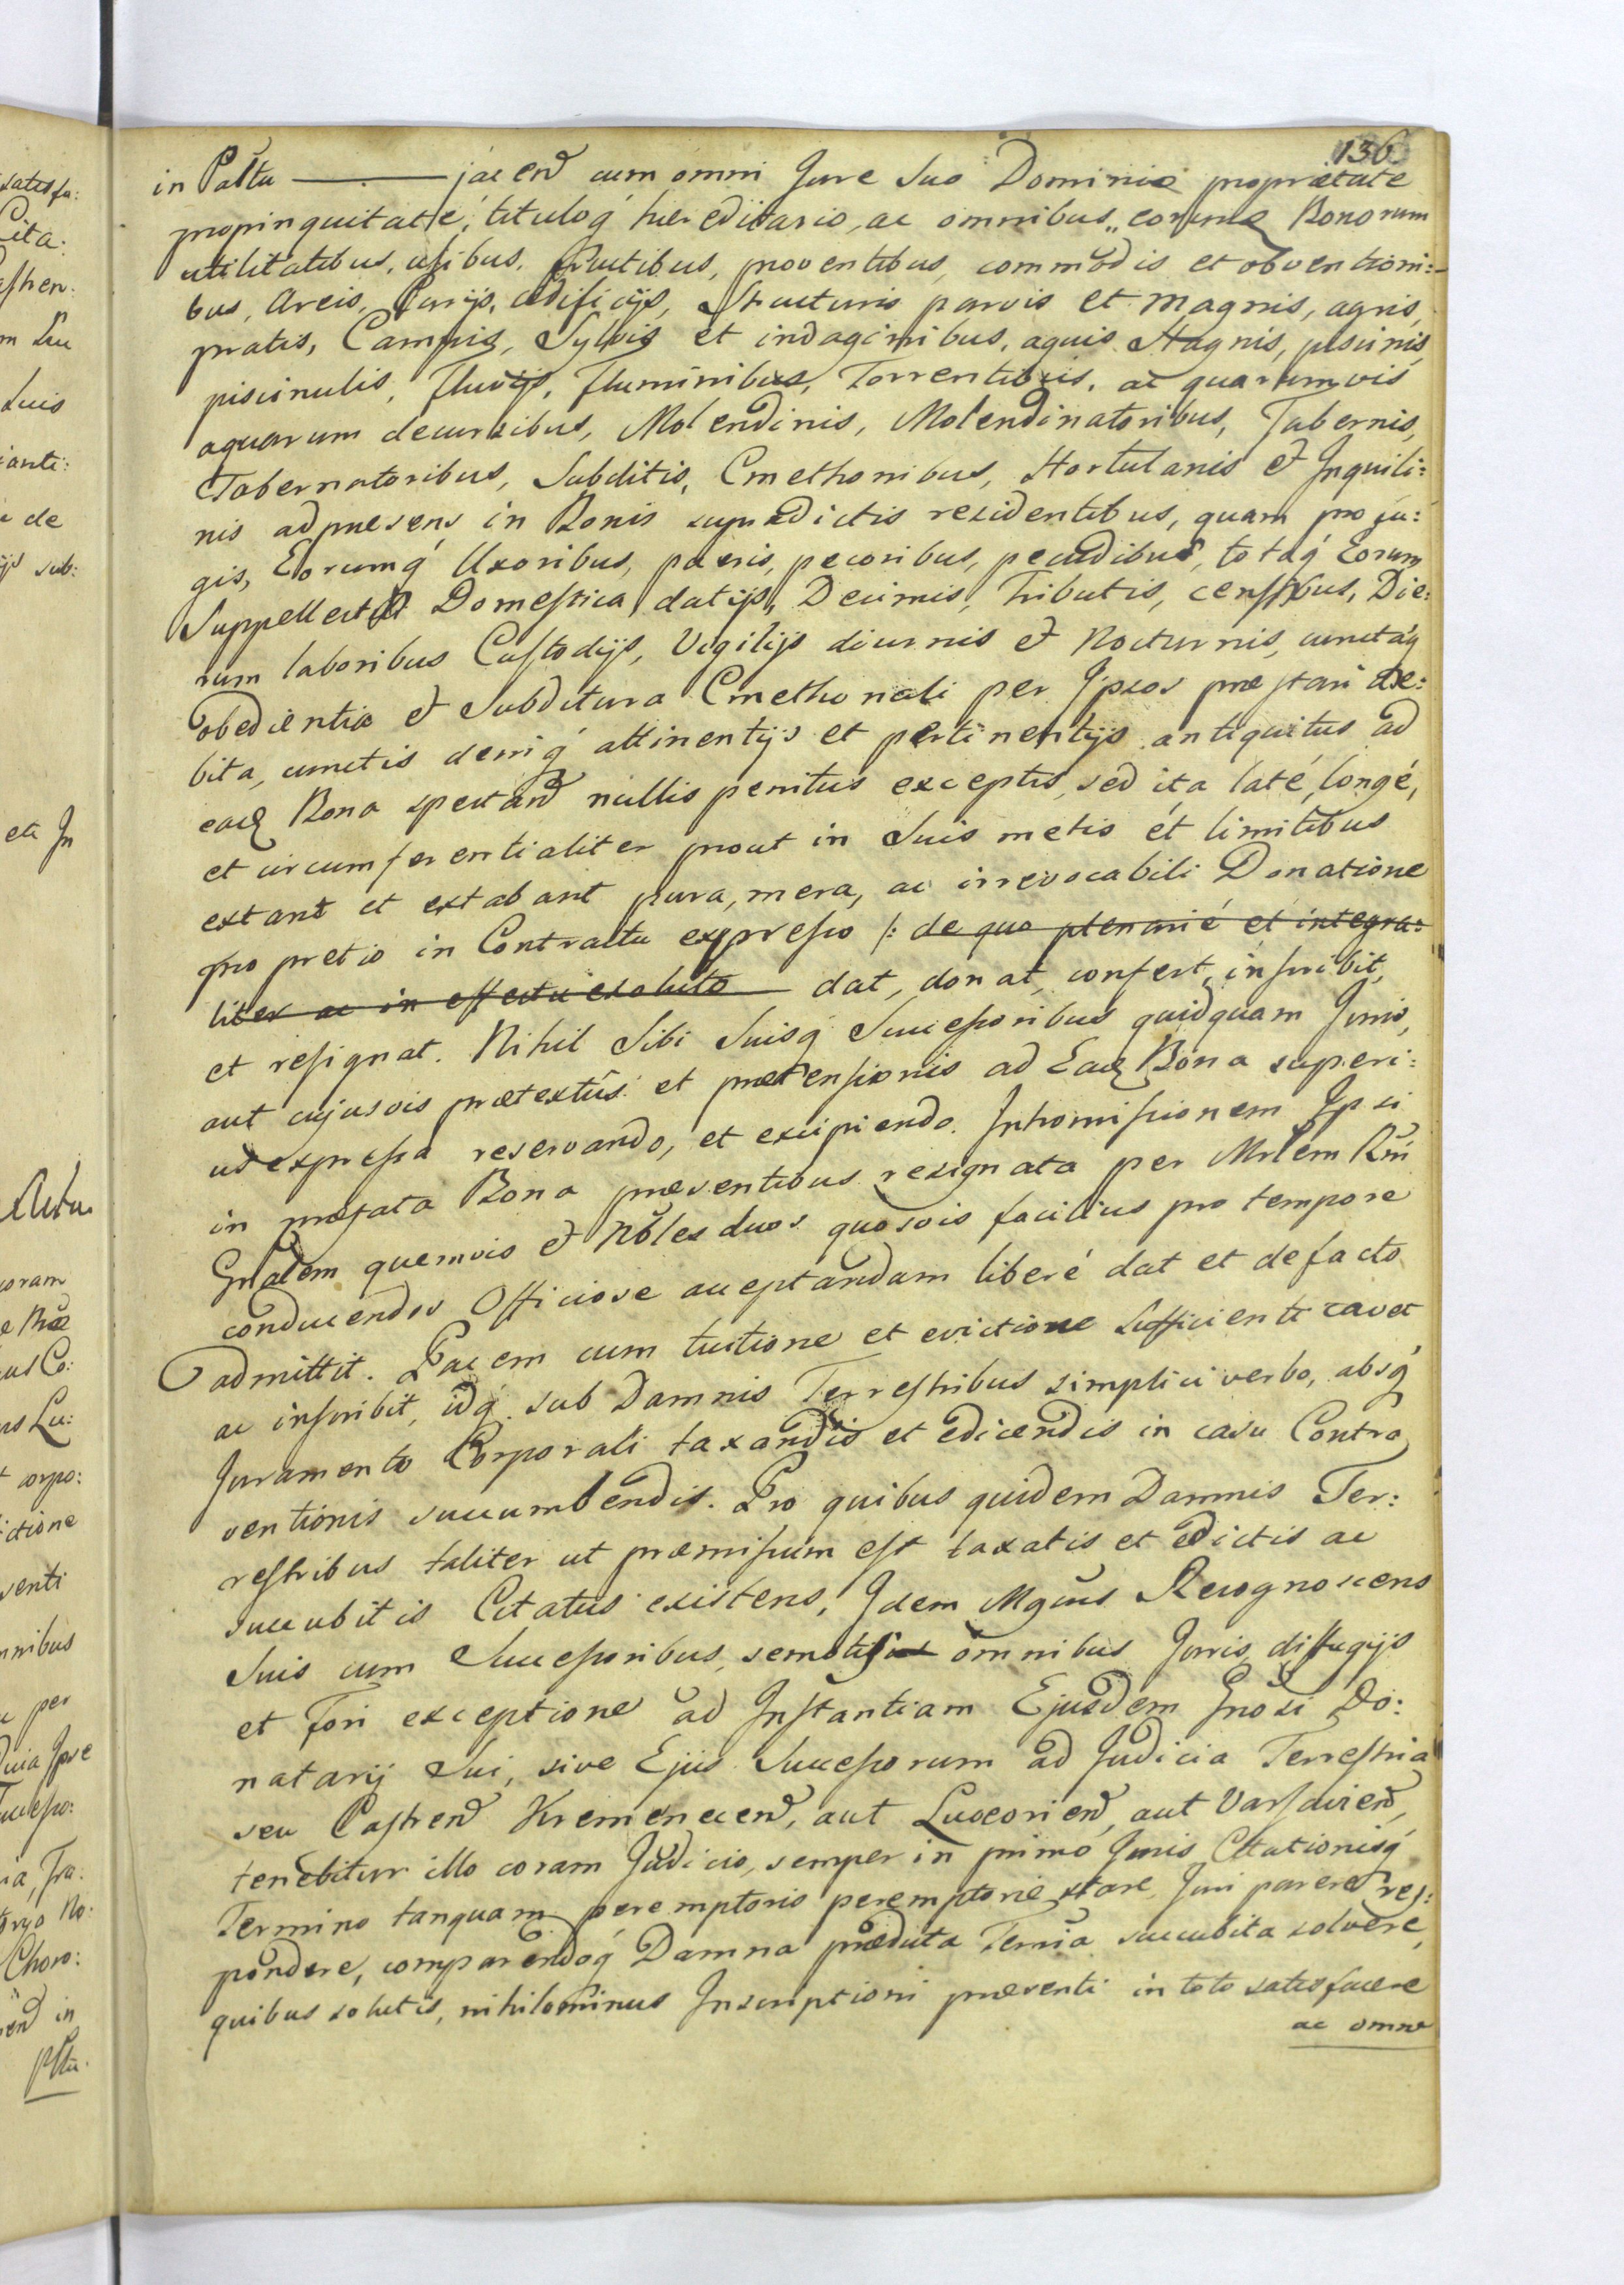 136
in Pałtu ——— jacend cum omni Jure Suo Dominio proprætate
propinquitate, tituloq́ hæreditario, ac omnibus eorumq Bonorum
utilitatibus, usibus, fructibus, proventibus, commodis et obventioni:
bus, Areis, Curijs, ædificijs, Structuris parvis et magnis, agris,
pratis, Campis, Sylvis et indaginibus, aquis Stagnis, piscinis,
piscinulis, Fluvijs, Fluminibus, Torrentibus, ac quarumvis
aquarum decursibus, Molendinis, Molendinatoribus, Tabernis,
Tabernatoribus, Subditis, Cmethonibus, Hortulanis et Inquili:
nis adpræsens in Bonis supradictis residentibus, quam profu:
gis, Eorumq́ Uxoribus, pueris, pecoribus, pecudibus, totaq́ Eorum
Suppellectili Domestica, datijs, Decimis, Tributis, censibus, Die:
rum laboribus Custodijs, Vigilijs diurnis et Nocturnis, cunctaq́
obedientia et Subditura Cmethonali per Ipsos præstari de:
bita, cunctis deniq́ attinentijs et pertinentijs antiquitus ad
eaq Bona spectand nullis penitus exceptis, sed ita laté, longé,
et circumferentialiter prout in Suis metis et limitibus
extant et extabant pura, mera, ac irrevocabili Donatione
pro pretio in Contractu expresso /: de quo plenarié et integra:
liter ac in effectu exoluto dat, donat, confert, inscribit,
et resignat. Nihil Sibi Suisq́ Successoribus quidquam Juris,
aut cujusvis prætextûs et prætensionis ad Eaq Bona superi:
us expressa reservando, et excipiendo. Intromissionem Ipsi
in præfata Bona præsentibus resignata per Mrlem Rni
Gnalem quemvis et Nobles duos quosvis facilius pro tempore
conducendos Officiose acceptandam liberé dat et defacto
admittit. Pacem cum tuitione et evictione sufficienti cavet
ac inscribit, idq́ sub Damnis Terrestribus simplici verbo, absq́
Juramento Corporali taxandis et edicendis in casu Contra
ventionis succumbendis. Pro quibus quidem Damnis Ter:
restribus taliter ut præmissum est taxatis et edictis ac
succubitis Citatus existens, Idem Mgcus Recognoscens
Suis cum Successoribus, semotis omnibus Juris diffugijs
et Fori exceptione ad Instantiam Ejusdem Gnosi Do:
natarij Sui, sive Ejus Successorum ad Judicia Terrestria
seu Castrend Kremenecend, aut Luceoriend, aut Varsaviend,
tenebitur illo coram Judicio, semper in primo Juris Citationisq́
Termino tanquam peremptorio peremptorie stare Juri parere res:
pondere, comparendoq́ Damna prædicta Terria succubita solvere,
quibus solutis, nihilominus Inscriptioni præsenti in toto satisfacere
ac omne